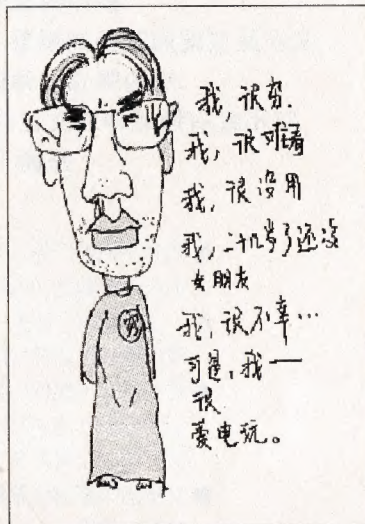 我，很穷.
我，很
我，很没用
我，二十几岁了还没
女朋友
我，很不幸…
可是，我——
很
爱电玩。